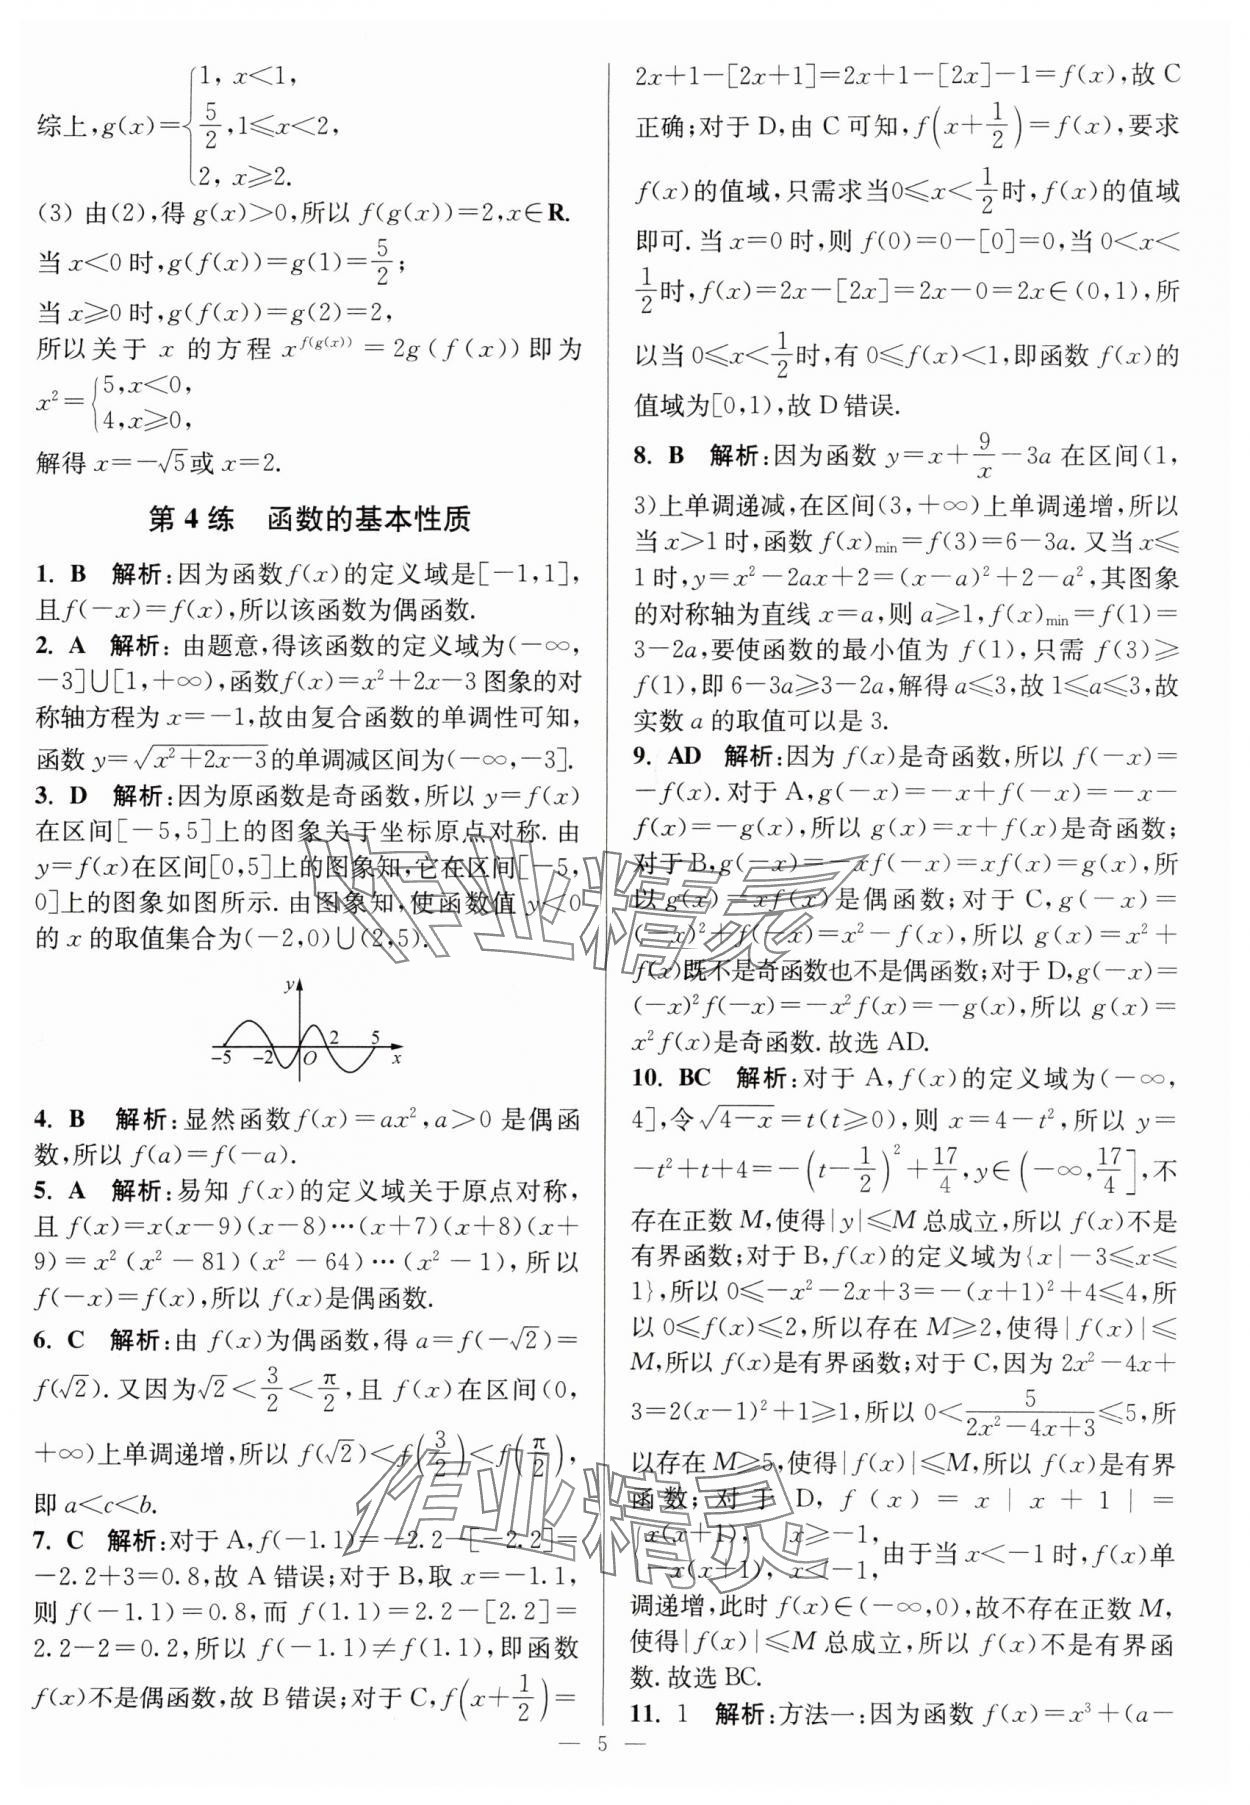 综上,g(x)={1, x<1,
5/2, 1≤x<2,
2, x≥2.
(3) 由(2),得 g(x)>0,所以 f(g(x))=2,x∈R.
当 x<0 时,g(f(x))=g(1)=5/2;
当 x≥0 时,g(f(x))=g(2)=2,
所以关于 x 的方程 x^{f(g(x))}=2g(f(x))即为
x²={5,x<0,
4,x≥0,
解得 x=-√5或 x=2.
第 4 练 函数的基本性质
1. B 解析:因为函数f(x)的定义域是[-1,1],
且f(-x)=f(x),所以该函数为偶函数.
2. A 解析: 由题意,得该函数的定义域为(-∞,
-3]∪[1,+∞),函数f(x)=x²+2x-3图象的对
称轴方程为 x=-1,故由复合函数的单调性可知,
函数 y=√(x²+2x-3)的单调减区间为(-∞,-3].
3. D 解析:因为原函数是奇函数,所以 y=f(x)
在区间[-5,5]上的图象关于坐标原点对称. 由
y=f(x)在区间[0,5]上的图象知,它在区间[-5,
0]上的图象如图所示. 由图象知,使函数值 y<0
的 x 的取值集合为(-2,0)∪(2,5).
y
-5 -2 O 2 5 x
4. B 解析:显然函数 f(x)=ax²,a>0 是偶函
数,所以 f(a)=f(-a).
5. A 解析:易知 f(x)的定义域关于原点对称,
且 f(x)=x(x-9)(x-8)…(x+7)(x+8)(x+
9)=x²(x²-81)(x²-64)…(x²-1),所以
f(-x)=f(x),所以 f(x)是偶函数.
6. C 解析:由 f(x)为偶函数,得 a=f(-√2)=
f(√2). 又因为√2<3/2<π/2,且 f(x)在区间(0,
+∞)上单调递增,所以 f(√2)<f(3/2)<f(π/2),
即 a<c<b.
7. C 解析:对于 A,f(-1.1)=-2.2-[-2.2]=
-2.2+3=0.8,故 A 错误;对于 B,取 x=-1.1,
则 f(-1.1)=0.8,而 f(1.1)=2.2-[2.2]=
2.2-2=0.2,所以 f(-1.1)≠f(1.1),即函数
f(x)不是偶函数,故 B 错误;对于 C,f(x+1/2)=
2x+1-[2x+1]=2x+1-[2x]-1=f(x),故 C
正确;对于 D,由 C 可知,f(x+1/2)=f(x),要求
f(x)的值域,只需求当0≤x<1/2时,f(x)的值域
即可. 当 x=0 时,则 f(0)=0-[0]=0,当 0<x<
1/2时,f(x)=2x-[2x]=2x-0=2x∈(0,1),所
以当 0≤x<1/2时,有 0≤f(x)<1,即函数 f(x)的
值域为[0,1),故 D 错误.
8. B 解析:因为函数 y=x+9/x-3a 在区间(1,
3)上单调递减,在区间(3,+∞)上单调递增,所以
当 x>1 时,函数 f(x)min=f(3)=6-3a. 又当 x≤
1 时,y=x²-2ax+2=(x-a)²+2-a²,其图象
的对称轴为直线 x=a,则 a≥1,f(x)min=f(1)=
3-2a,要使函数的最小值为 f(1),只需 f(3)≥
f(1),即 6-3a≥3-2a,解得 a≤3,故 1≤a≤3,故
实数 a 的取值可以是 3.
9. AD 解析:因为 f(x)是奇函数,所以 f(-x)=
-f(x). 对于 A,g(-x)=-x+f(-x)=-x-
f(x)=-g(x),所以 g(x)=x+f(x)是奇函数;
对于 B,g(-x)=-xf(-x)=xf(x)=g(x),所
以 g(x)=xf(x)是偶函数;对于 C,g(-x)=
(-x)²+f(-x)=x²-f(x),所以 g(x)=x²+
f(x)既不是奇函数也不是偶函数;对于 D,g(-x)=
(-x)²f(-x)=-x²f(x)=-g(x),所以 g(x)=
x²f(x)是奇函数. 故选 AD.
10. BC 解析:对于 A,f(x)的定义域为(-∞,
4],令√(4-x)=t(t≥0),则 x=4-t²,所以 y=
-t²+t+4=-(t-1/2)²+17/4,y∈(-∞,17/4],不
存在正数 M,使得|y|≤M 总成立,所以 f(x)不是
有界函数;对于 B,f(x)的定义域为{x|-3≤x≤
1},所以 0≤-x²-2x+3=-(x+1)²+4≤4,所
以 0≤f(x)≤2,所以存在 M≥2,使得|f(x)|≤
M,所以 f(x)是有界函数;对于 C,因为 2x²-4x+
3=2(x-1)²+1≥1,所以 0<5/(2x²-4x+3)≤5,所
以存在 M≥5,使得|f(x)|≤M,所以 f(x)是有界
函数;对于 D,f(x)=x|x+1|=
{x(x+1), x≥-1,
-x(x+1), x<-1,由于当 x<-1 时,f(x)单
调递增,此时 f(x)∈(-∞,0),故不存在正数 M,
使得|f(x)|≤M 总成立,所以 f(x)不是有界函
数. 故选 BC.
11. 1 解析:方法一:因为函数 f(x)=x³+(a-
— 5 —
作业精灵
作业精灵